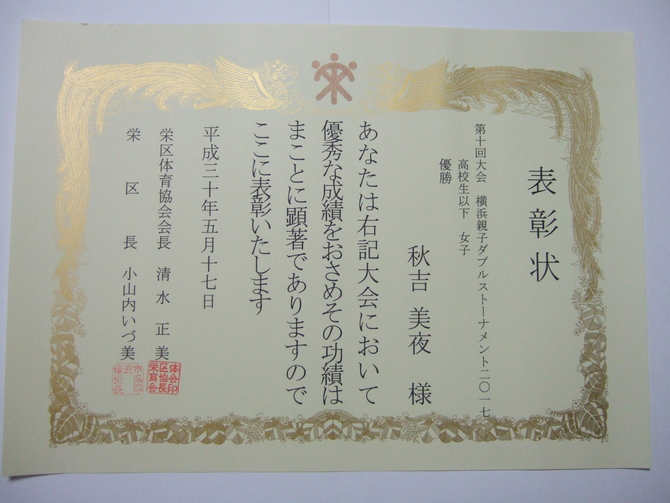 表彰状
第十回大会 横浜親子ダブルストーナメント二〇一七
高校生以下 女子
優勝
秋吉 美夜 様
あなたは右記大会において
優秀な成績をおさめその功績は
まことに顕著でありますので
ここに表彰いたします
平成三十年五月十七日
栄区体育協会会長 清水 正美
栄区長 小山内いづ美
体会印
区協長
栄育会